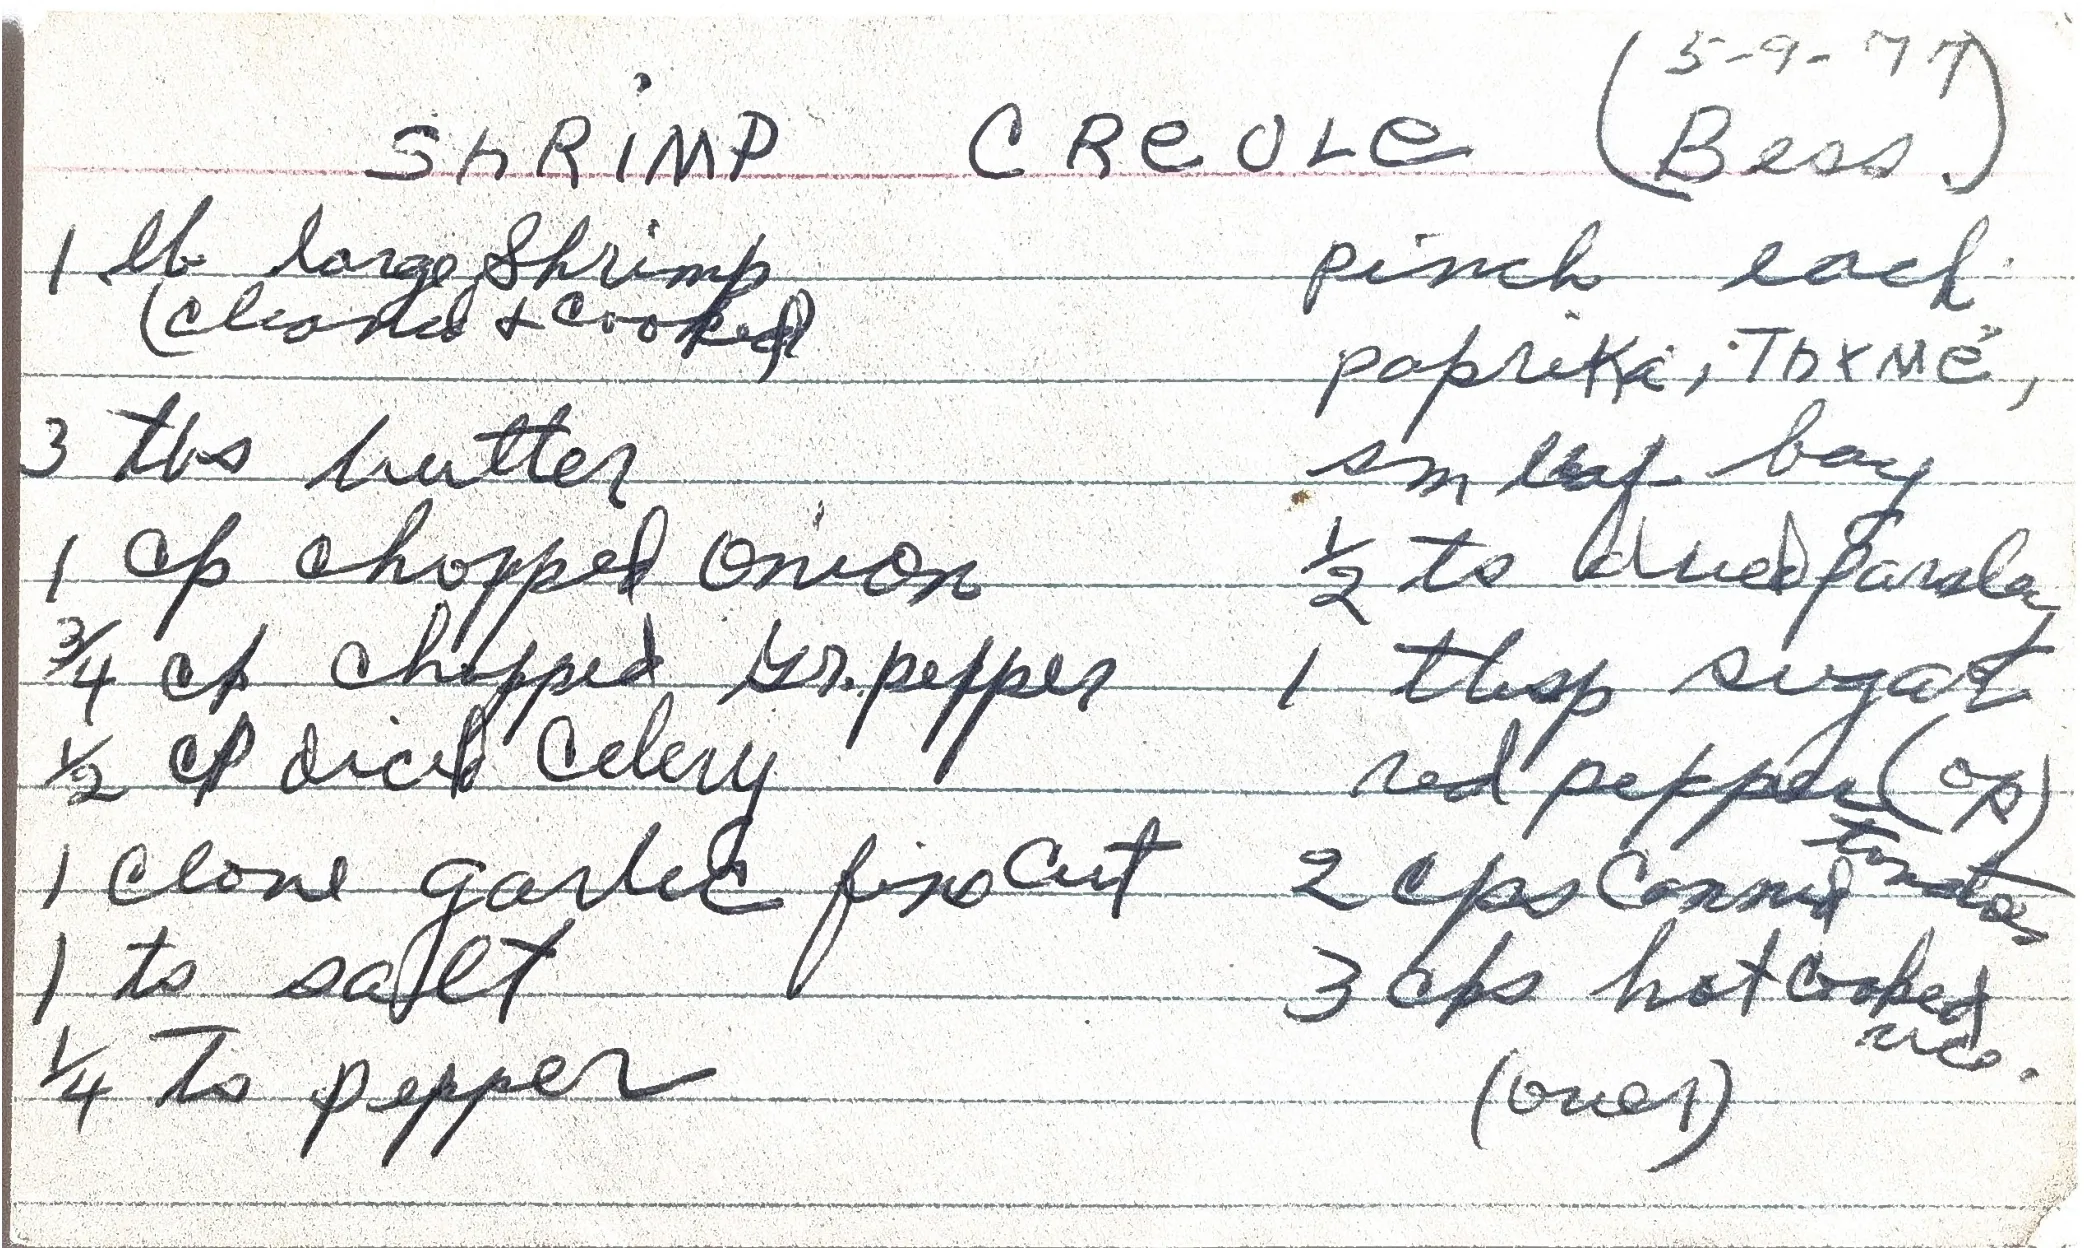 (5-9-77
SHRIMP CREOLE
Bess.)
1 lb large Shrimp
(cleaned & cooked)
3 tbs butter
1 cp chopped onion
3/4 cp chopped gr. pepper
1/2 cp diced Celery
1 clove garlic fine cut
1 ts salt
1/4 Ts pepper
pinch each
paprika, THYME,
sm leaf bay
1/2 ts dried Parsley
1 tbsp sugar
red pepper (op)
2 cps Canned tomatoes
3 cps hot cooked
rice.
(over)